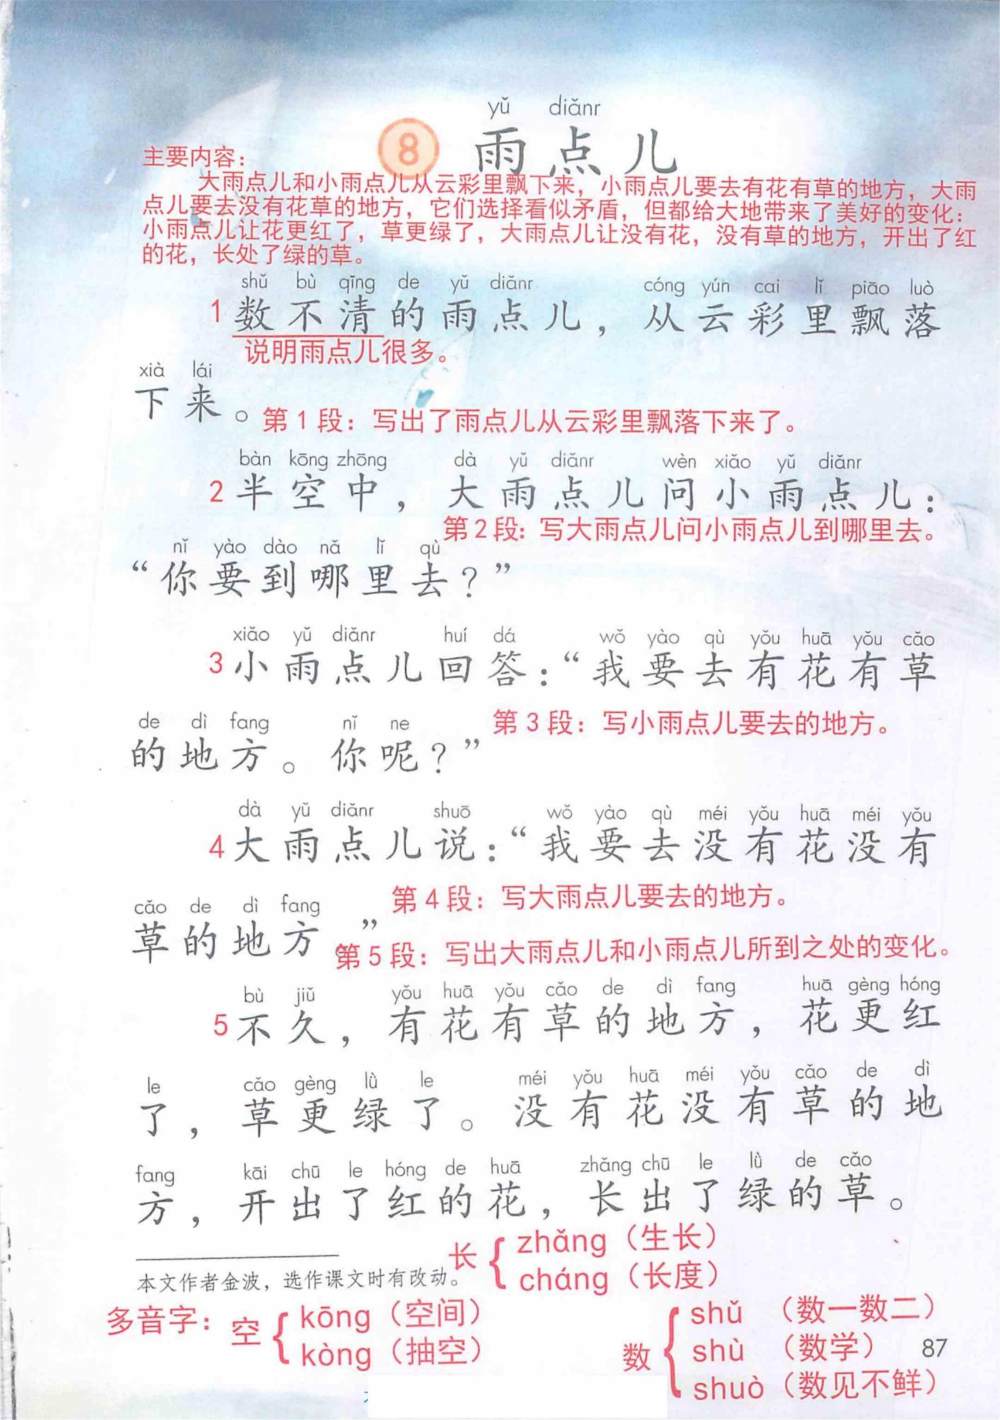 yǔ diǎnr
8 雨点儿
主要内容：
大雨点儿和小雨点儿从云彩里飘下来，小雨点儿要去有花有草的地方，大雨
点儿要去没有花草的地方，它们选择看似矛盾，但都给大地带来了美好的变化：
小雨点儿让花更红了，草更绿了，大雨点儿让没有花，没有草的地方，开出了红
的花，长处了绿的草。
shǔ bù qīng de yǔ diǎnr cóng yún cai lǐ piāo luò
1 数不清的雨点儿，从云彩里飘落
说明雨点儿很多。
xià lái
下来。
第1段：写出了雨点儿从云彩里飘落下来了。
bàn kōng zhōng dà yǔ diǎnr wèn xiǎo yǔ diǎnr
2 半空中，大雨点儿问小雨点儿：
第2段：写大雨点儿问小雨点儿到哪里去。
nǐ yào dào nǎ lǐ qù
“你要到哪里去？”
xiǎo yǔ diǎnr huí dá wǒ yào qù yǒu huā yǒu cǎo
3 小雨点儿回答：“我要去有花有草
de dì fang nǐ ne
的地方。你呢？”
第3段：写小雨点儿要去的地方。
dà yǔ diǎnr shuō wǒ yào qù méi yǒu huā méi yǒu
4 大雨点儿说：“我要去没有花没有
第4段：写大雨点儿要去的地方。
cǎo de dì fang
草的地方。”
第5段：写出大雨点儿和小雨点儿所到之处的变化。
bù jiǔ yǒu huā yǒu cǎo de dì fang huā gèng hóng
5 不久，有花有草的地方，花更红
le cǎo gèng lǜ le méi yǒu huā méi yǒu cǎo de dì
了，草更绿了。没有花没有草的地
fang kāi chū le hóng de huā zhǎng chū le lǜ de cǎo
方，开出了红的花，长出了绿的草。
长 { zhǎng（生长）
cháng（长度）
本文作者金波，选作课文时有改动。
多音字：空 { kōng（空间）
kòng（抽空）
数 { shǔ （数一数二）
shù （数学）
shuò（数见不鲜）
87